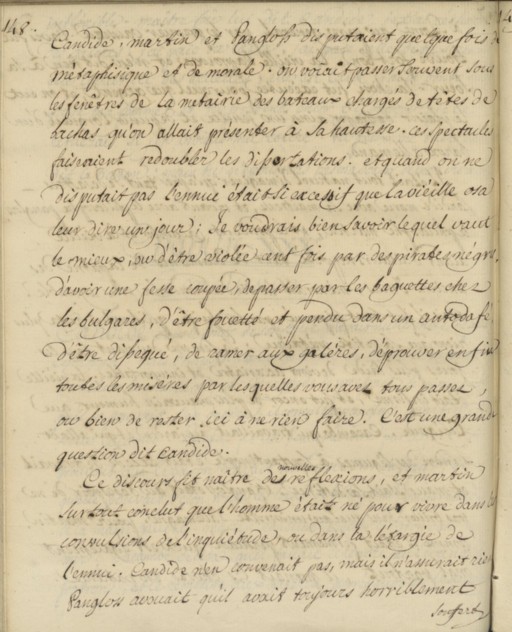 148.
Candide, martin et Pangloss disputaient quelque fois de
métaphisique et de morale. on voiait passer souvent sous
les fenêtres de la metairie des bateaux chargés de têtes de
bachas qu'on allait présenter à sa hautesse. ces spectacles
faisaient redoubler les dissertations. et quand on ne
disputait pas l'ennui était si excessif que la vieille osa
leur dire un jour; Je voudrais bien savoir lequel vaut
le mieux, ou d'être violée cent fois par des pirates négres,
d'avoir une fesse coupée, de passer par les baguettes chez
les bulgares, d'être fouetté et pendu dans un autodafe,
d'être disséqué, de ramer aux galéres, d'éprouver enfin
toutes les miséres par lesquelles vous avez tous passez,
ou bien de rester ici à ne rien faire. C'est une grande
question dit Candide.
Ce discours fit naître des nouvelles reflexions, et martin
surtout conclut que l'homme était né pour vivre dans les
convulsions de l'inquiétude, ou dans la létargie de
l'ennui. Candide n'en convenait pas, mais il n'assurait rien
Pangloss avouait qu'il avait toujours horriblement
soufert